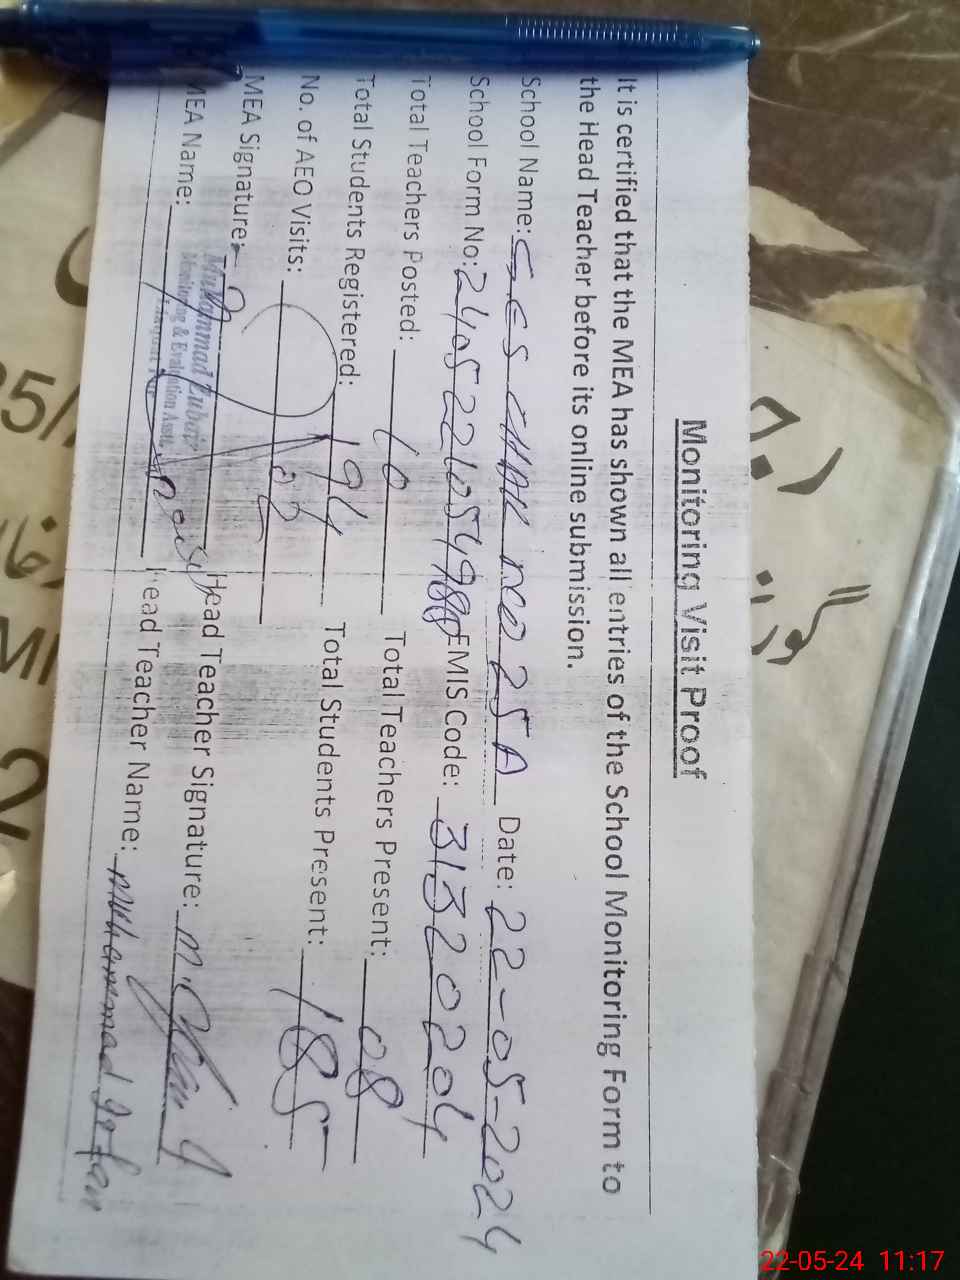 Monitoring Visit Proof
It is certified that the MEA has shown all entries of the School Monitoring Form to
the Head Teacher before its online submission.
School Name: GES CHAK NO 25 A Date: 22-05-2024
School Form No: 240522105498 EMIS Code: 31320204
Total Teachers Posted: 10 Total Teachers Present: 08
Total Students Registered: 194 Total Students Present: 185
No. of AEO Visits: 02
MEA Signature: Head Teacher Signature:
Muhammad Zubair
Monitoring & Evaluation Asstt.
MEA Name: Head Teacher Name: Muhammad Irfan
22-05-24 11:17